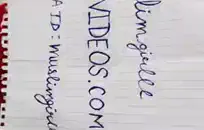 limgirlll
VIDEOS.COM
A ID = muslimgirl